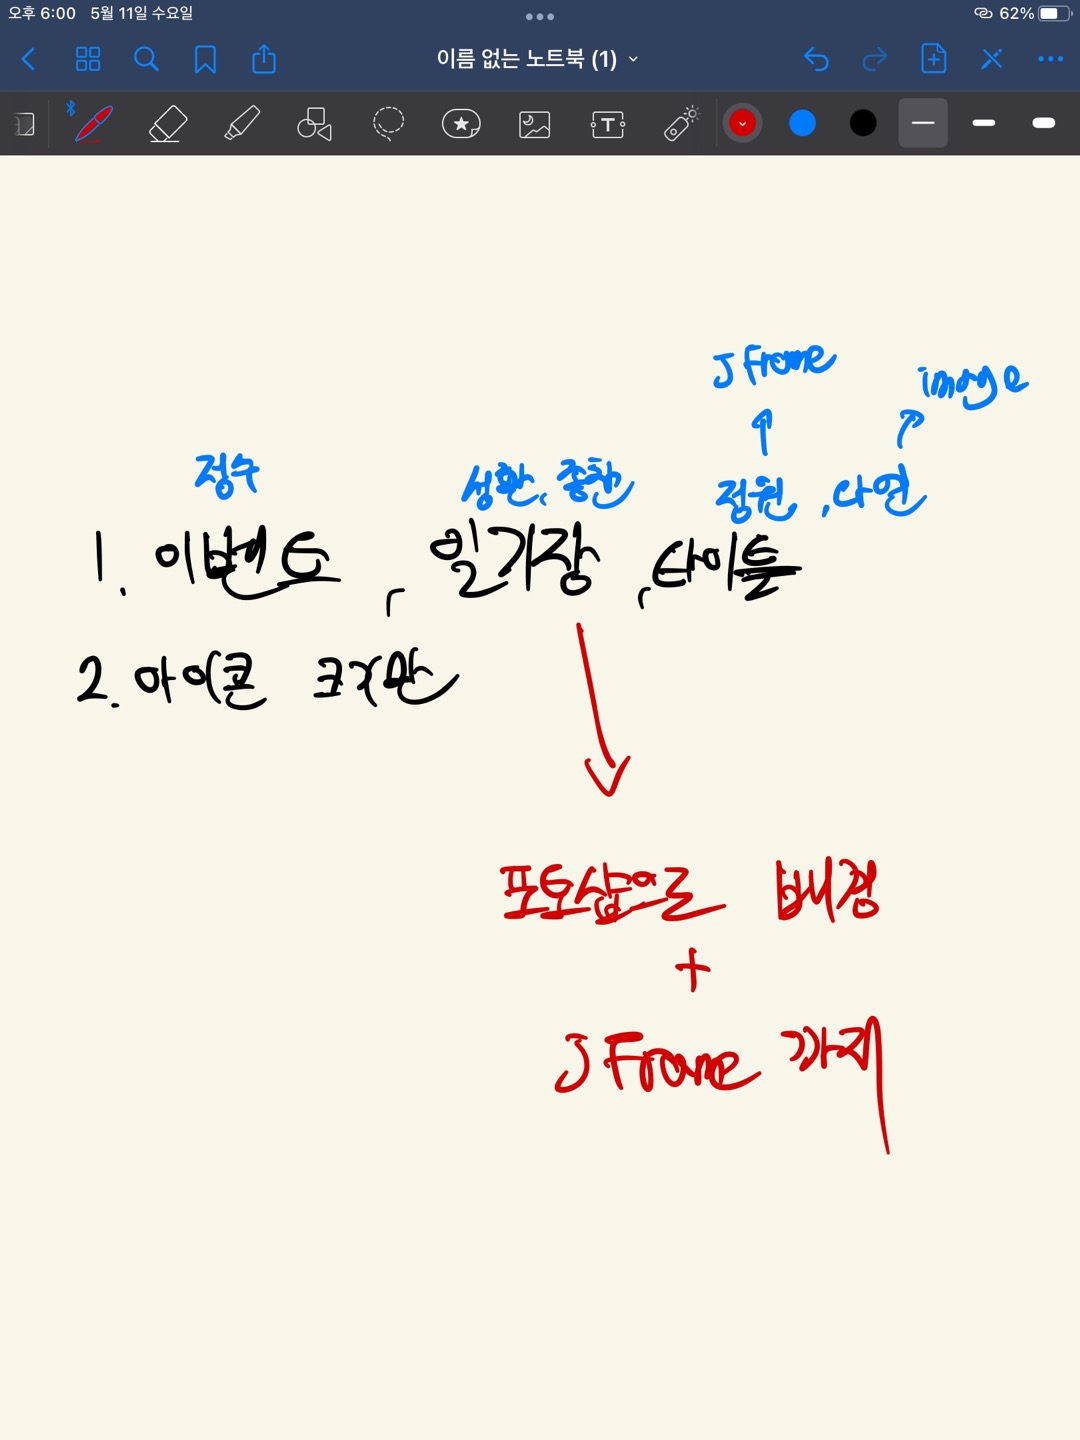 오후 6:00 5월 11일 수요일 62%
이름 없는 노트북 (1)
T
JFrame
image
정수 성환, 종찬 정원, 다연
1. 이벤트, 일기장, 타이틀
2. 아이콘 크기만
포토샵으로 배경
+
JFrame 까지